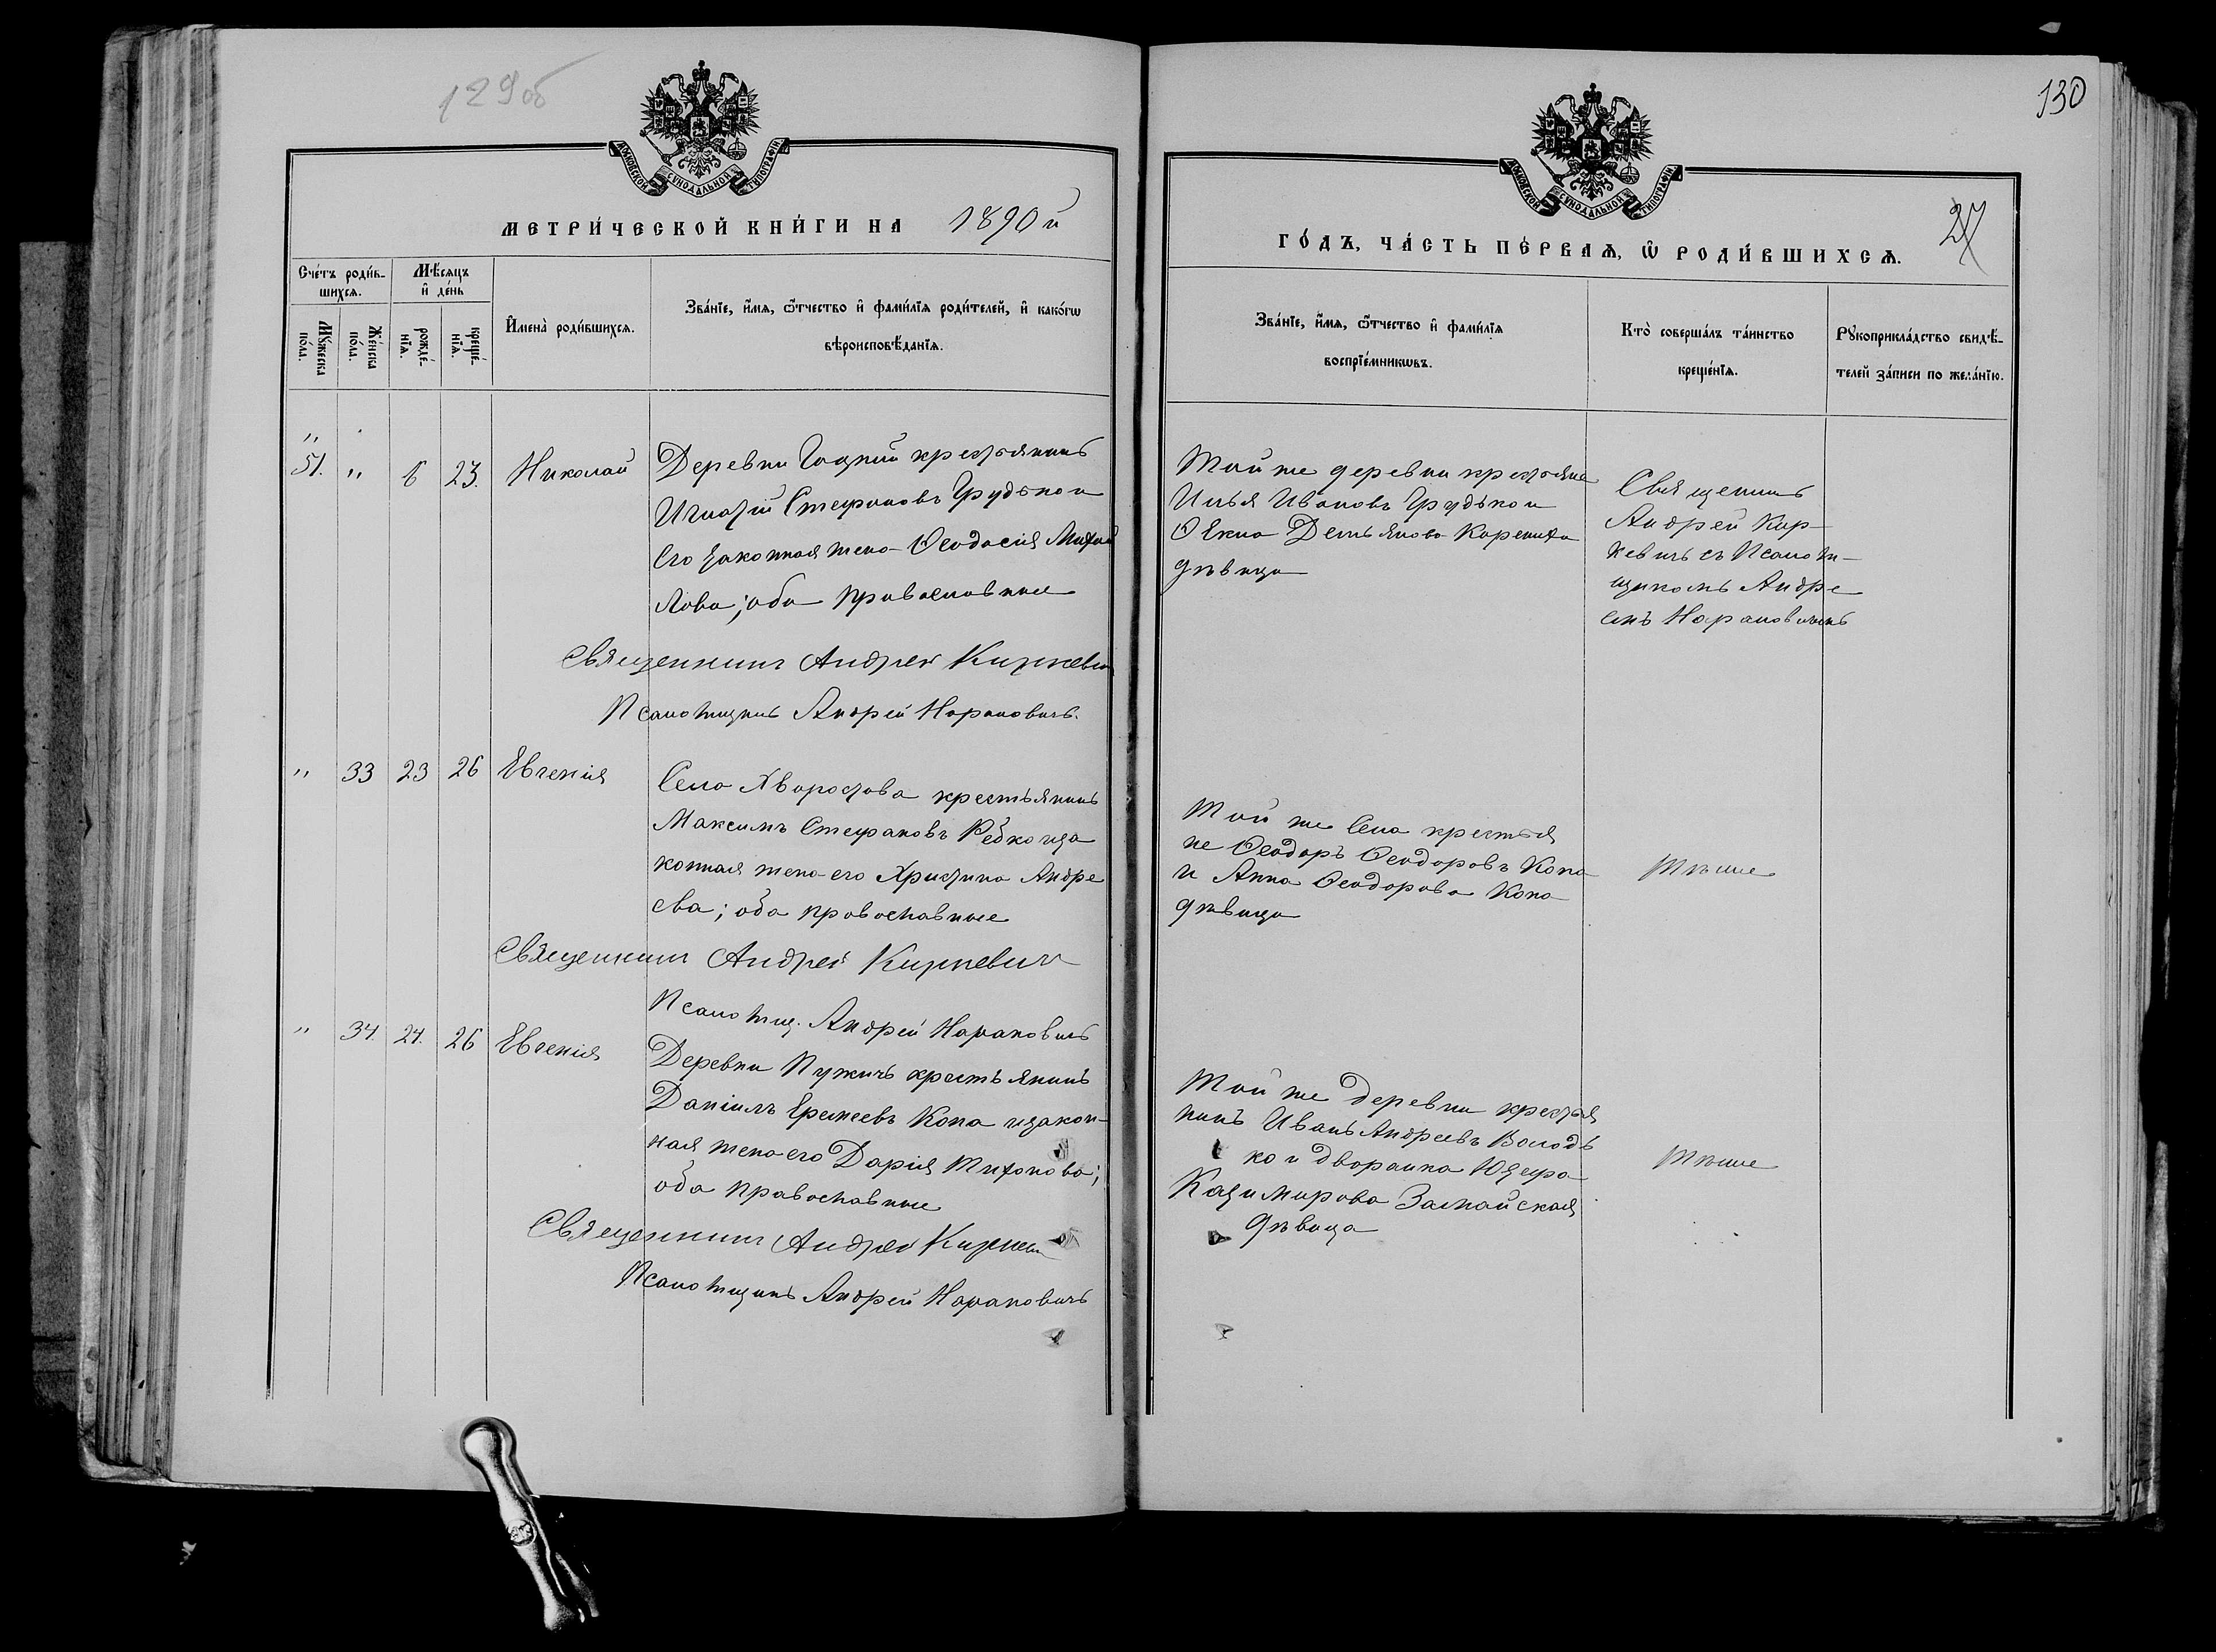 129 об
МОСКОВСКОЙ СѴНОДАЛЬНОЙ ТИПОГРАФІИ
МЕТРИ́ЧЕСКОЙ КНИ́ГИ НА 1890 й
Сче́тъ роди́в-
шихсѧ.
Мѣ́сѧцъ
и҆ де́нь
Мꙋ́жеска
по́ла.
Же́нска
по́ла.
рожде́-
нїѧ.
креще́-
нїѧ.
И҆мена̀ роди́вшихсѧ.
Зва́нїе, и҆́мѧ, ѻ҆́тчество и҆ фами́лїѧ роди́телей, и҆ како́гѡ
вѣроисповѣ́данїѧ.
"
51. " 6 23. Николай
Деревни Гацкой крестьянинъ
Игнатій Стефановъ Грудько и
его законная жена Ѳеодосія Михай
лова; оба православные
Священникъ Андрей Киркевич
Псаломщикъ Андрей Нарановичъ.
" 33 23 26 Евгенія
Села Хворостова крестьянинъ
Максимъ Стефановъ Рѣдко и за
конная жена его Христина Андре
ева; оба православные
Священникъ Андрей Киркевичъ
Псаломщ. Андрей Нарановичъ
" 34. 24. 26 Евгенія
Деревни Пужичъ крестьянинъ
Даніилъ Еремеевъ Копа и закон-
ная жена его Дарія Тихонова;
оба православные
Священникъ Андрей Киркеви
Псаломщикъ Андрей Нарановичъ
130
МОСКОВСКОЙ СѴНОДАЛЬНОЙ ТИПОГРАФІИ
27
ГО́ДЪ, ЧА́СТЬ ПЕ́РВАѦ, Ѡ҆ РОДИ́ВШИХСѦ.
Зва́нїе, и҆́мѧ, ѻ҆́тчество и҆ фами́лїѧ
воспрїе́мникѡвъ.
Кто̀ соверша́лъ та́инство
креще́нїѧ.
Рꙋкоприкла́дство свидѣ́-
телей за́писи по жела́нїю.
Той же деревни крестьяне
Илья Ивановъ Грудько и
Ѳекла Демьянова
дѣвица
Священникъ
Андрей Кир-
кевичъ съ Псалом-
щикомъ Андре
емъ Нарановичемъ
Той же Села крестья
не Ѳеодоръ Ѳеодоровъ Копа
и Анна Ѳеодорова Копа
дѣвица
Тѣже
Той же деревни крестья
нинъ Иванъ Андреевъ Володь
ко и дворянка Юзефа
Казимирова
дѣвица
Тѣже